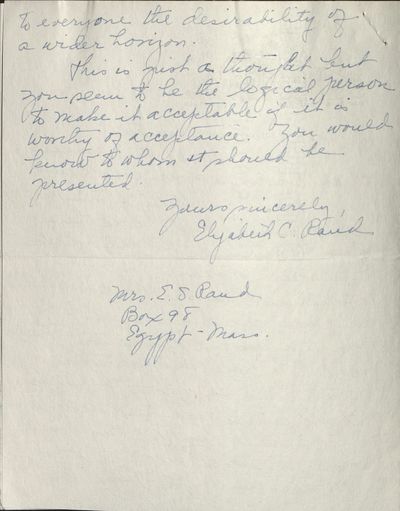 to everyone the desirability of
a wider horizon.
This is just a thought but
you seem to be the logical person
to make it acceptable if it is
worthy of acceptance. You would
know to whom it should be
presented.
Yours sincerely,
Elizabeth C. Rand
Mrs. E. S. Rand
Box 98
Egypt - Mass.